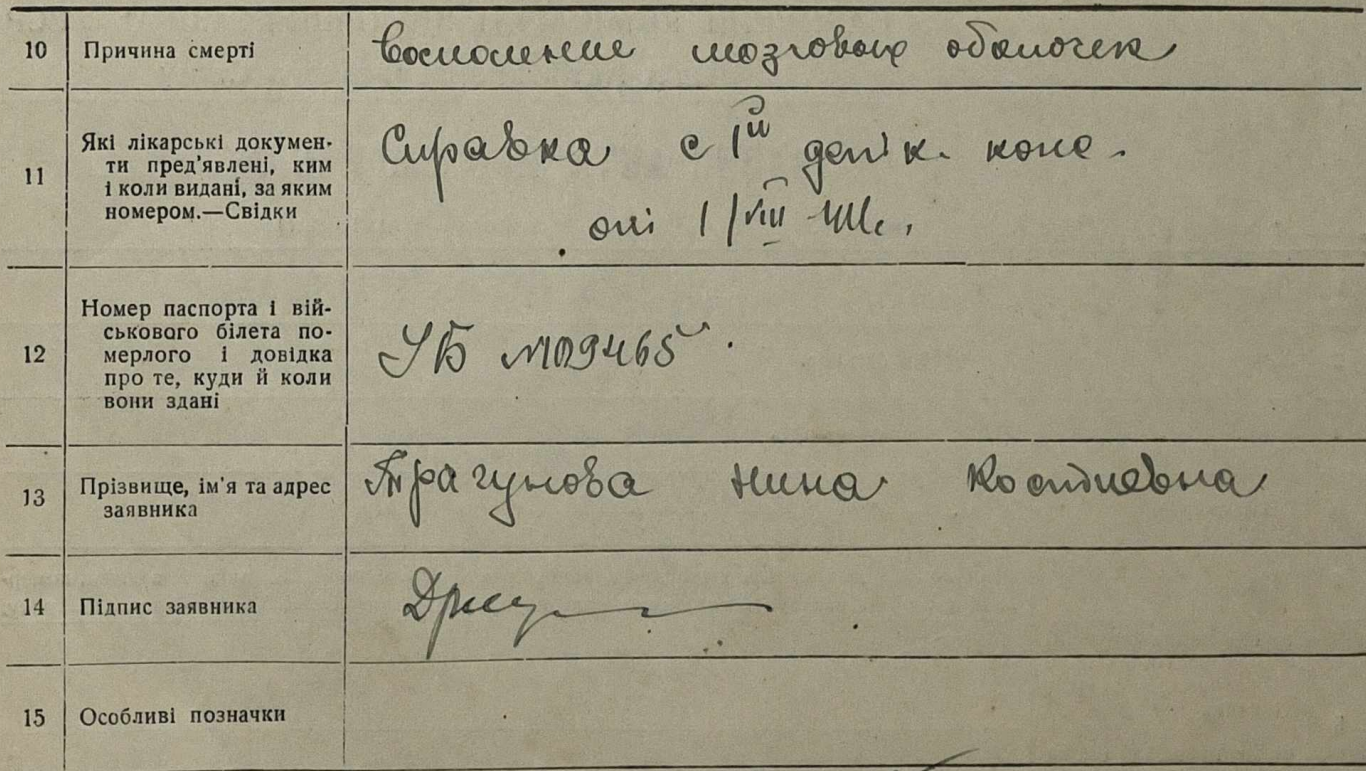 10 Причина смерти
воспаление мозговых оболочек
11 Які лікарські докумен-
ти пред'явлені, ким
і коли видані, за яким
номером.—Свідки
Справка с 1й
12 Номер паспорта і вій-
ськового білета по-
мерлого і довідка
про те, куди й коли
вони здані
УБ №09465
13 Прізвище, ім'я та адрес
заявника
Нина
14 Підпис заявника
15 Особливі позначки